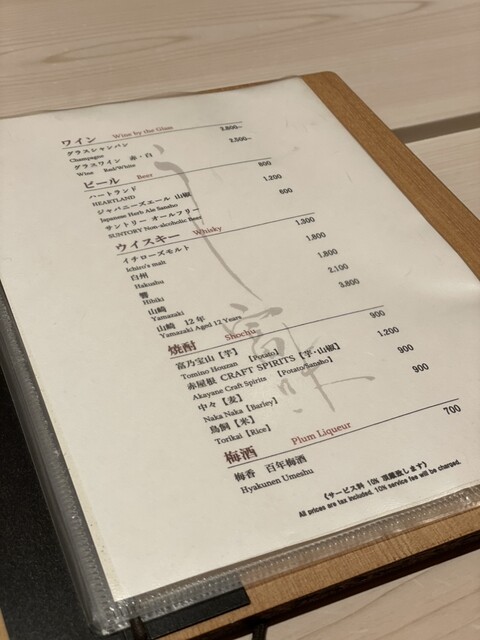 ワイン Wine by the Glass
グラスシャンパン 2,800～
Champagne
グラスワイン 赤・白 2,500～
Wine Red/White
ビール Beer
ハートランド 800
HEARTLAND
ジャパニーズエール 山椒 1,200
Japanese Herb Ale Sansho
サントリー オールフリー 600
SUNTORY Non-alcoholic Beer
ウイスキー Whisky
イチローズモルト 1,300
Ichiro's malt
白州 1,800
Hakushu
響 1,800
Hibiki
山崎 2,100
Yamazaki
山崎 12年 3,800
Yamazaki Aged 12 Years
焼酎 Shochu
富乃宝山【芋】 900
Tomino Houzan 【Potato】
赤屋根 CRAFT SPIRITS【芋・山椒】 1,200
Akayane Craft Spirits 【Potato/Sansho】
中々【麦】 900
Naka Naka【Barley】
鳥飼【米】 900
Torikai【Rice】
梅酒 Plum Liqueur
梅香 百年梅酒 700
Hyakunen Umeshu
《サービス料 10% 頂戴致します》
All prices are tax included. 10% service fee will be charged.